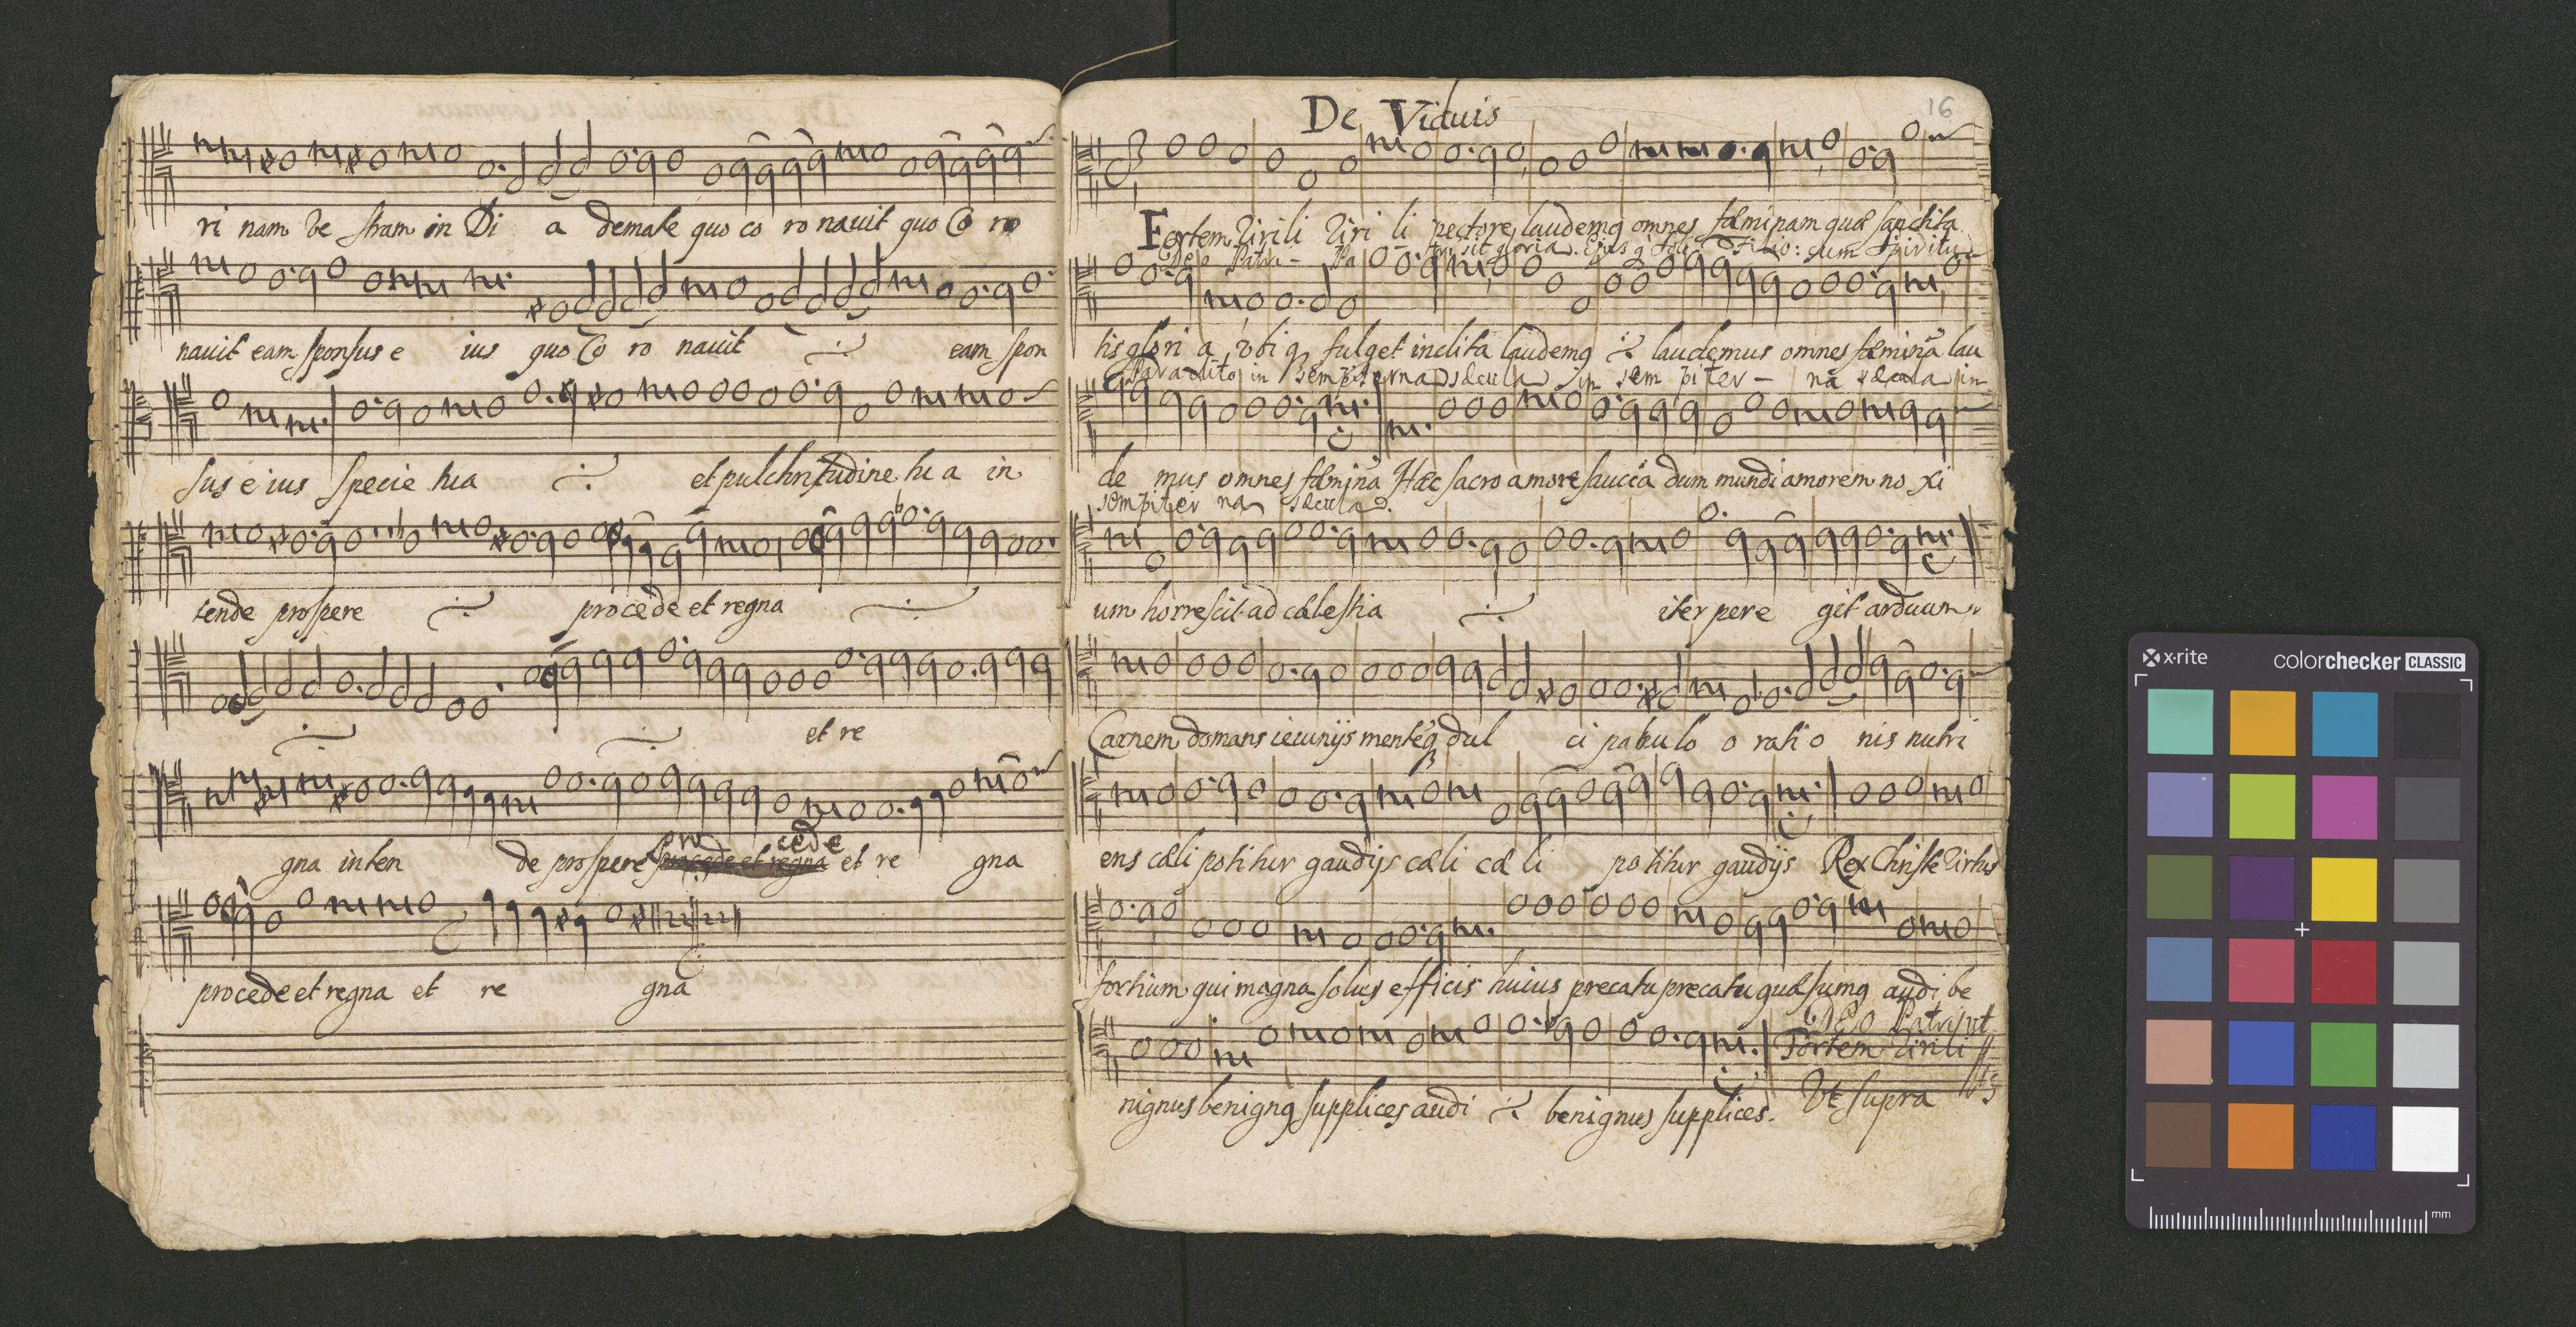 ri nam ve stram in Di a demate quo co ro navit quo Co ro
navit eam sponsus e ius quo Co ro navit eam spon
sus e ius specie tua et pulchritudine tu a in
tende prospere procede et regna
et re
pro cede
gna inten de prospere procede et regna et re gna
procede et regna et re gna
16
De Viduis
Fortem Virili Viri li pectore laudemq omnes fæminam quæ sanctita
Deo Patri Pa tri sit gloria. Ejusq soli Filio: cum Spiritu
tis glori a ubi q fulget inclita laudemq laudemus omnes fæmina lau
Paraclito in sempiterna sæcula in sem piter na sæcula in
de mus omnes fæmina Hæc sacro amore saucia dum mundi amorem no xi
sempiter na sæcula.
um horrescit ad cælestia iter pere git arduum
Carnem domans ieiunijs menteq dul ci pabulo o rati o nis nutri
ens cæli potitur gaudijs cæli cæ li potitur gaudijs Rex Christe Virtus
fortium qui magna solus efficis huius precatu precatu quæsumq audi be
DEo Patri ut
Fortem Virili
nignus benignq supplices audi benignus supplices. Vt supra
x·rite
colorchecker CLASSIC
mm